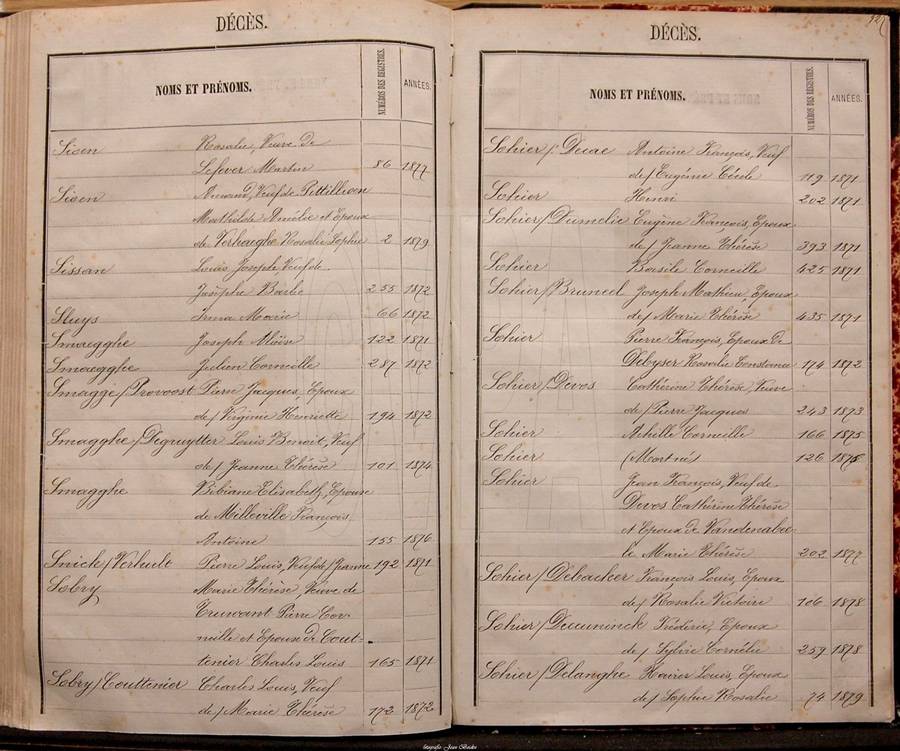 DÉCÈS.
NOMS ET PRÉNOMS. NUMÉROS DES REGISTRES. ANNÉES.
Sisen Rosalie, Veuve de
Lefever Martin 86 1877
Sisen Armand, Veuf de Pettillion
Mathilde Amélie et Epoux
de Verhaeghe Rosalie Sophie 2 1879
Sissan Louis Joseph, Veuf de
Josephe Barbe 255 1872
Sluys Irma Marie 66 1872
Smaegghe Joseph Aloïse 122 1871
Smaegghe Julien Corneille 287 1872
Smagge/Provoost Pierre Jacques, Epoux
de/Virginie Henriette 194 1872
Smagghe/Degruytter Louis Benoit, Veuf
de/Jeanne Thérèse 101 1874
Smagghe Bibiane Elisabeth, Epouse
de Milleville François,
Antoine 155 1876
Snick/Verhulle Pierre Louis, Veuf de/Jeanne 192 1871
Sobry Marie Thérèse, Veuve de
Truwant Pierre Cor-
neille et Epouse de Cout-
tenier Charles Louis 165 1871
Sobry/Couttenier Charles Louis, Veuf
de/Marie Thérèse 172 1872
DÉCÈS.
NOMS ET PRÉNOMS. NUMÉROS DES REGISTRES. ANNÉES.
Sohier/Decae Antoine François, Veuf
de/Eugénie Cécile 119 1871
Sohier Henri 202 1871
Sohier/Dumelie Eugène François, Epoux
de/Jeanne Thérèse 393 1871
Sohier Basile Corneille 425 1871
Sohier/Bruneel Joseph Mathieu, Epoux
de/Marie Thérèse 435 1871
Sohier Pierre François, Epoux de
Debyser Rosalie Constance 174 1872
Sohier/Devos Cathérine Thérèse, Veuve
de/Pierre Jacques 243 1873
Sohier Achille Corneille 166 1875
Sohier (Mort né) 126 1875
Sohier Jean François, Veuf de
Devos Cathérine Thérèse
et Epoux de Vandenabee
le Marie Thérèse 202 1877
Sohier/Debacker François Louis, Epoux
de/Rosalie Victoire 106 1878
Sohier/Deceuninck Fréderic, Epoux
de/Sylvie Cornélie 259 1878
Sohier/Delanghe Xavier Louis, Epoux
de/Sophie Rosalie 74 1879